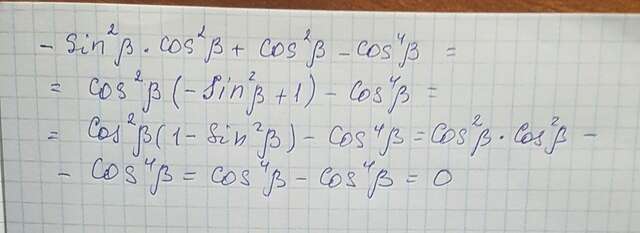 - Sin²β · Cos²β + Cos²β - Cos⁴β =
= Cos²β (-Sin²β + 1) - Cos⁴β =
= Cos²β (1 - Sin²β) - Cos⁴β = Cos²β · Cos²β -
- Cos⁴β = Cos⁴β - Cos⁴β = 0